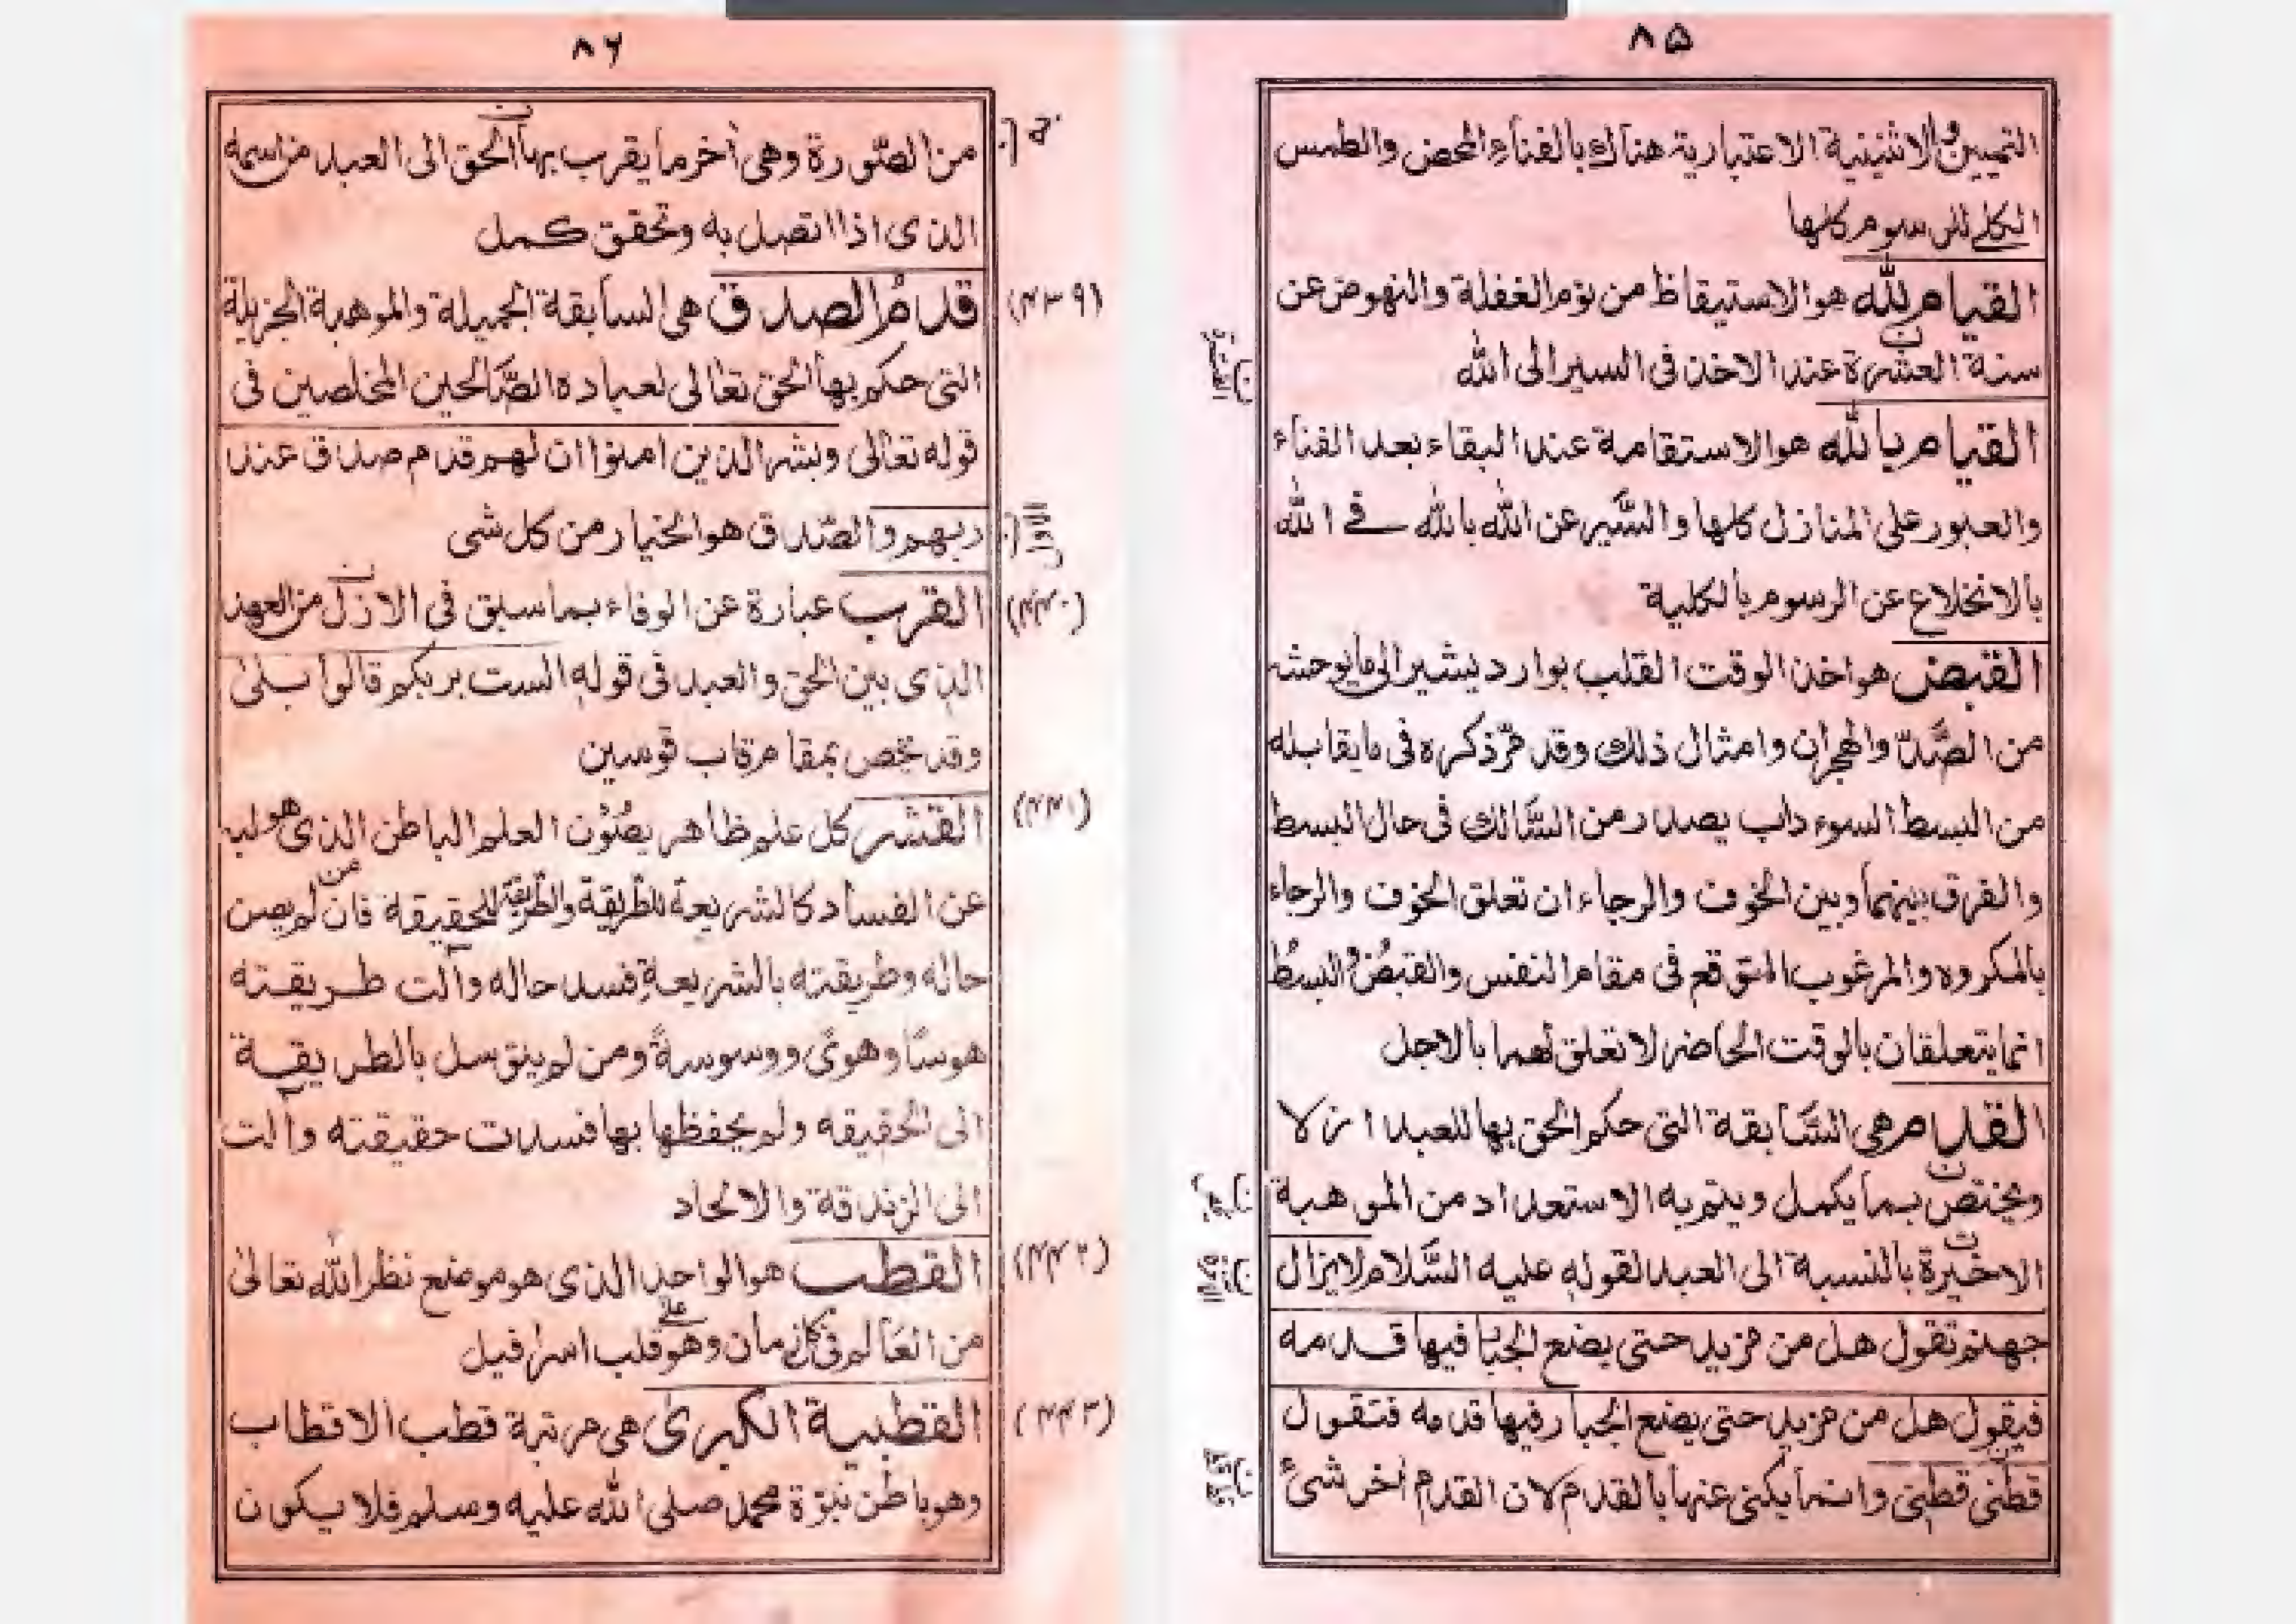 ٨٥
التمييز والاثنينية الاعتبارية هناك بالفناء المحض والطمس
الكلى للرسوم كلها
القيام لله هو الاستيقاظ من نوم الغفلة والنهوض عن
سنة العشرة عند الاخذ فى السير الى الله
القيام بالله هو الاستقامة عند البقاء بعد الفناء
والعبور على المنازل كلها والسَّير عن الله بالله فى الله
بالانخلاع عن الرسوم بالكلية
القبض هو اخذ الوقت القلب بوارد يشير الى ما يوحشه
من الصَّدّ والهجران وامثال ذلك وقد مرّ ذكره فى ما يقابله
من البسط السوء داب يصدر من السَّالك فى حال البسط
والفرق بينهما وبين الخوف والرجاء ان تعلق الخوف والرجاء
بالمكروه والمرغوب المتوقع فى مقام النفس والقبض والبسط
انما يتعلقان بالوقت الحاضر لا تعلق لهما بالاجل
القدم هى السَّابقة التى حكم الحق بها للعبد ازلا
ويختص بما يكمل ويتم به الاستعداد من الموهبة
الاخيرة بالنسبة الى العبد لقوله عليه السَّلام لا يزال
جهنم تقول هل من مزيد حتى يضع الجبا فيها قدمه
فيقول هل من مزيد حتى يضع الجبار فيها قدمه فتقول
قطنى قطنى وانما يكنى عنها بالقدم لان القدم أخر شئ
٨٦
من الصّورة وهى أخر ما يقرب بها الحق الى العبد من اسمه
الذى اذا اتصل به وتحقق كمل
(٤٣٩) قدمُ الصدق هى السابقة الجميلة والموهبة الجزيلة
التى حكم بها الحق تعالى لعباده الصَّالحين المخلصين فى
قوله تعالى وبشر الذين امنوا ان لهم قدم صدق عند
ربهم والصّدق هو الخيار من كل شى
(٤٤٠) القرب عبارة عن الوفاء بما سبق فى الازل من العهد
الذى بين الحق والعبد فى قوله الست بربكم قالوا بلىٰ
وقد يخص بمقام قاب قوسين
(٤٤١) القشر كل علم ظاهر يصُوْن العلم الباطن الذى هو لبه
عن الفساد كالشريعة للطّريقة والطّريقة للحقيقة فان من لم يصن
حاله وطريقته بالشريعة فسد حاله وألت طريقته
هوسًا وهوىً ووسوسةً ومن لم يتوسل بالطريقة
الى الحقيقه ولم يحفظها بها فسدت حقيقته وألت
الى الزندقة والالحاد
(٤٤٢) القطب هو الواحد الذى هو موضع نظر الله تعالىٰ
من العَالم فى كل زمان وهو على قلب اسرافيل
(٤٤٣) القطبية الكبرىٰ هى مرتبة قطب الاقطاب
وهو باطن نبوّة محمد صلى الله عليه وسلم فلا يكون